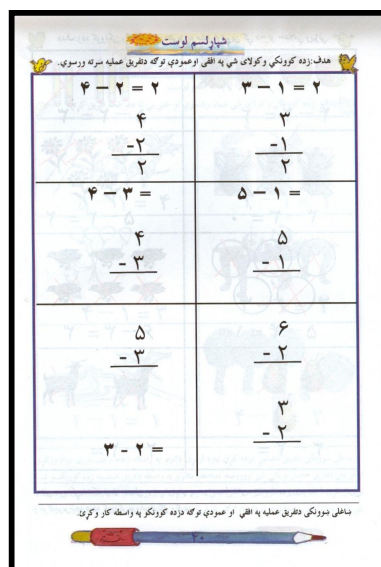 شپاړلسم لوست
هدف: زده کوونکي وکولای شي په افقي او عمودي توګه دتفریق عملیه سرته ورسوي.
۳ − ۱ = ۲
۳
-۱
۲
۴ − ۲ = ۲
۴
-۲
۲
۵ − ۱ =
۵
- ۱
۴ − ۳ =
۴
- ۳
۶
- ۲
۳
- ۲
۵
- ۳
۳ - ۲ =
ښاغلي ښوونکی دتفریق عملیه په افقي او عمودي توګه دزده کوونکو په واسطه کار وکړئ.
۲۰